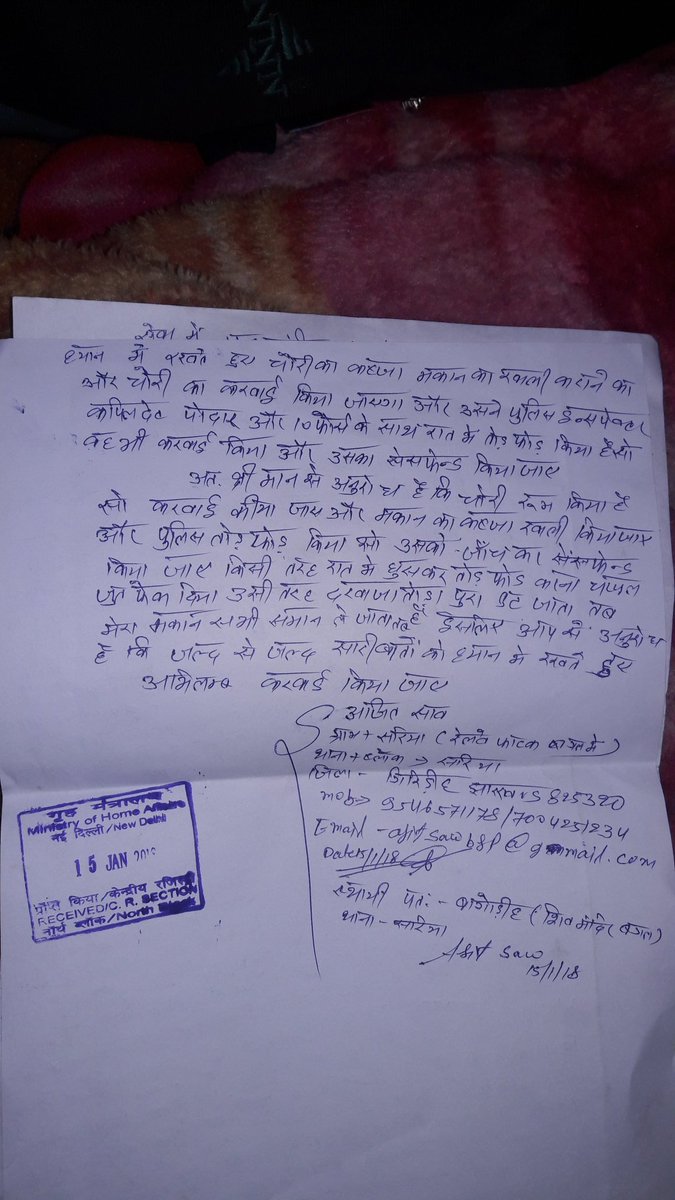 सेवा में
ध्यान में रखते हुए चोरी का कब्जा मकान का खाली कराने का
और चोरी का करवाई किया जाएगा और उसने पुलिस इन्सपेक्टर
कपिलदेव पोद्दार और 10 फोर्स के साथ रात में तोड़ फोड़ किया है सो
वह भी करवाई किया और उसका सस्पेन्ड किया जाए
अत. श्री मान से अनुरोध है कि चोरी किया है
सो करवाई कीया जाए और मकान का कब्जा खाली किया जाए
और पुलिस तोड़ फोड़ किया सो उसको जाँच कर सस्पेन्ड
किया जाए किसी तरह रात में घुसकर तोड़ फोड़ करना चप्पल
जुता फेंक दिया उसी तरह दरवाजा तोड़ा पुरा टुट जाता तब
मेरा मकान सभी समान ले जाता इसलिए आप से अनुरोध
है कि जल्द से जल्द सारी बातों को ध्यान में रखते हुए
अभिलम्ब करवाई किया जाए
अजित साव
ग्राम + सरिया (रेलवे फाटक बगल में)
थाना + ब्लॉक → सरिया
जिला - गिरिडीह झारखण्ड 825320
mob→ 9546571178/7004251234
Email - ajitsawbgp@gmail.com
Date 15/1/18
स्थायी पत: - बागोडीह (शिव मंदिर बगल)
थाना - सरिया
Ajit Saw
15/1/18
गृह मंत्रालय
Ministry of Home Affairs
नई दिल्ली/New Delhi
15 JAN 2018
प्राप्त किया/केन्द्रीय रजिस्ट्री
RECEIVED/C. R. SECTION
नार्थ ब्लॉक/North Block